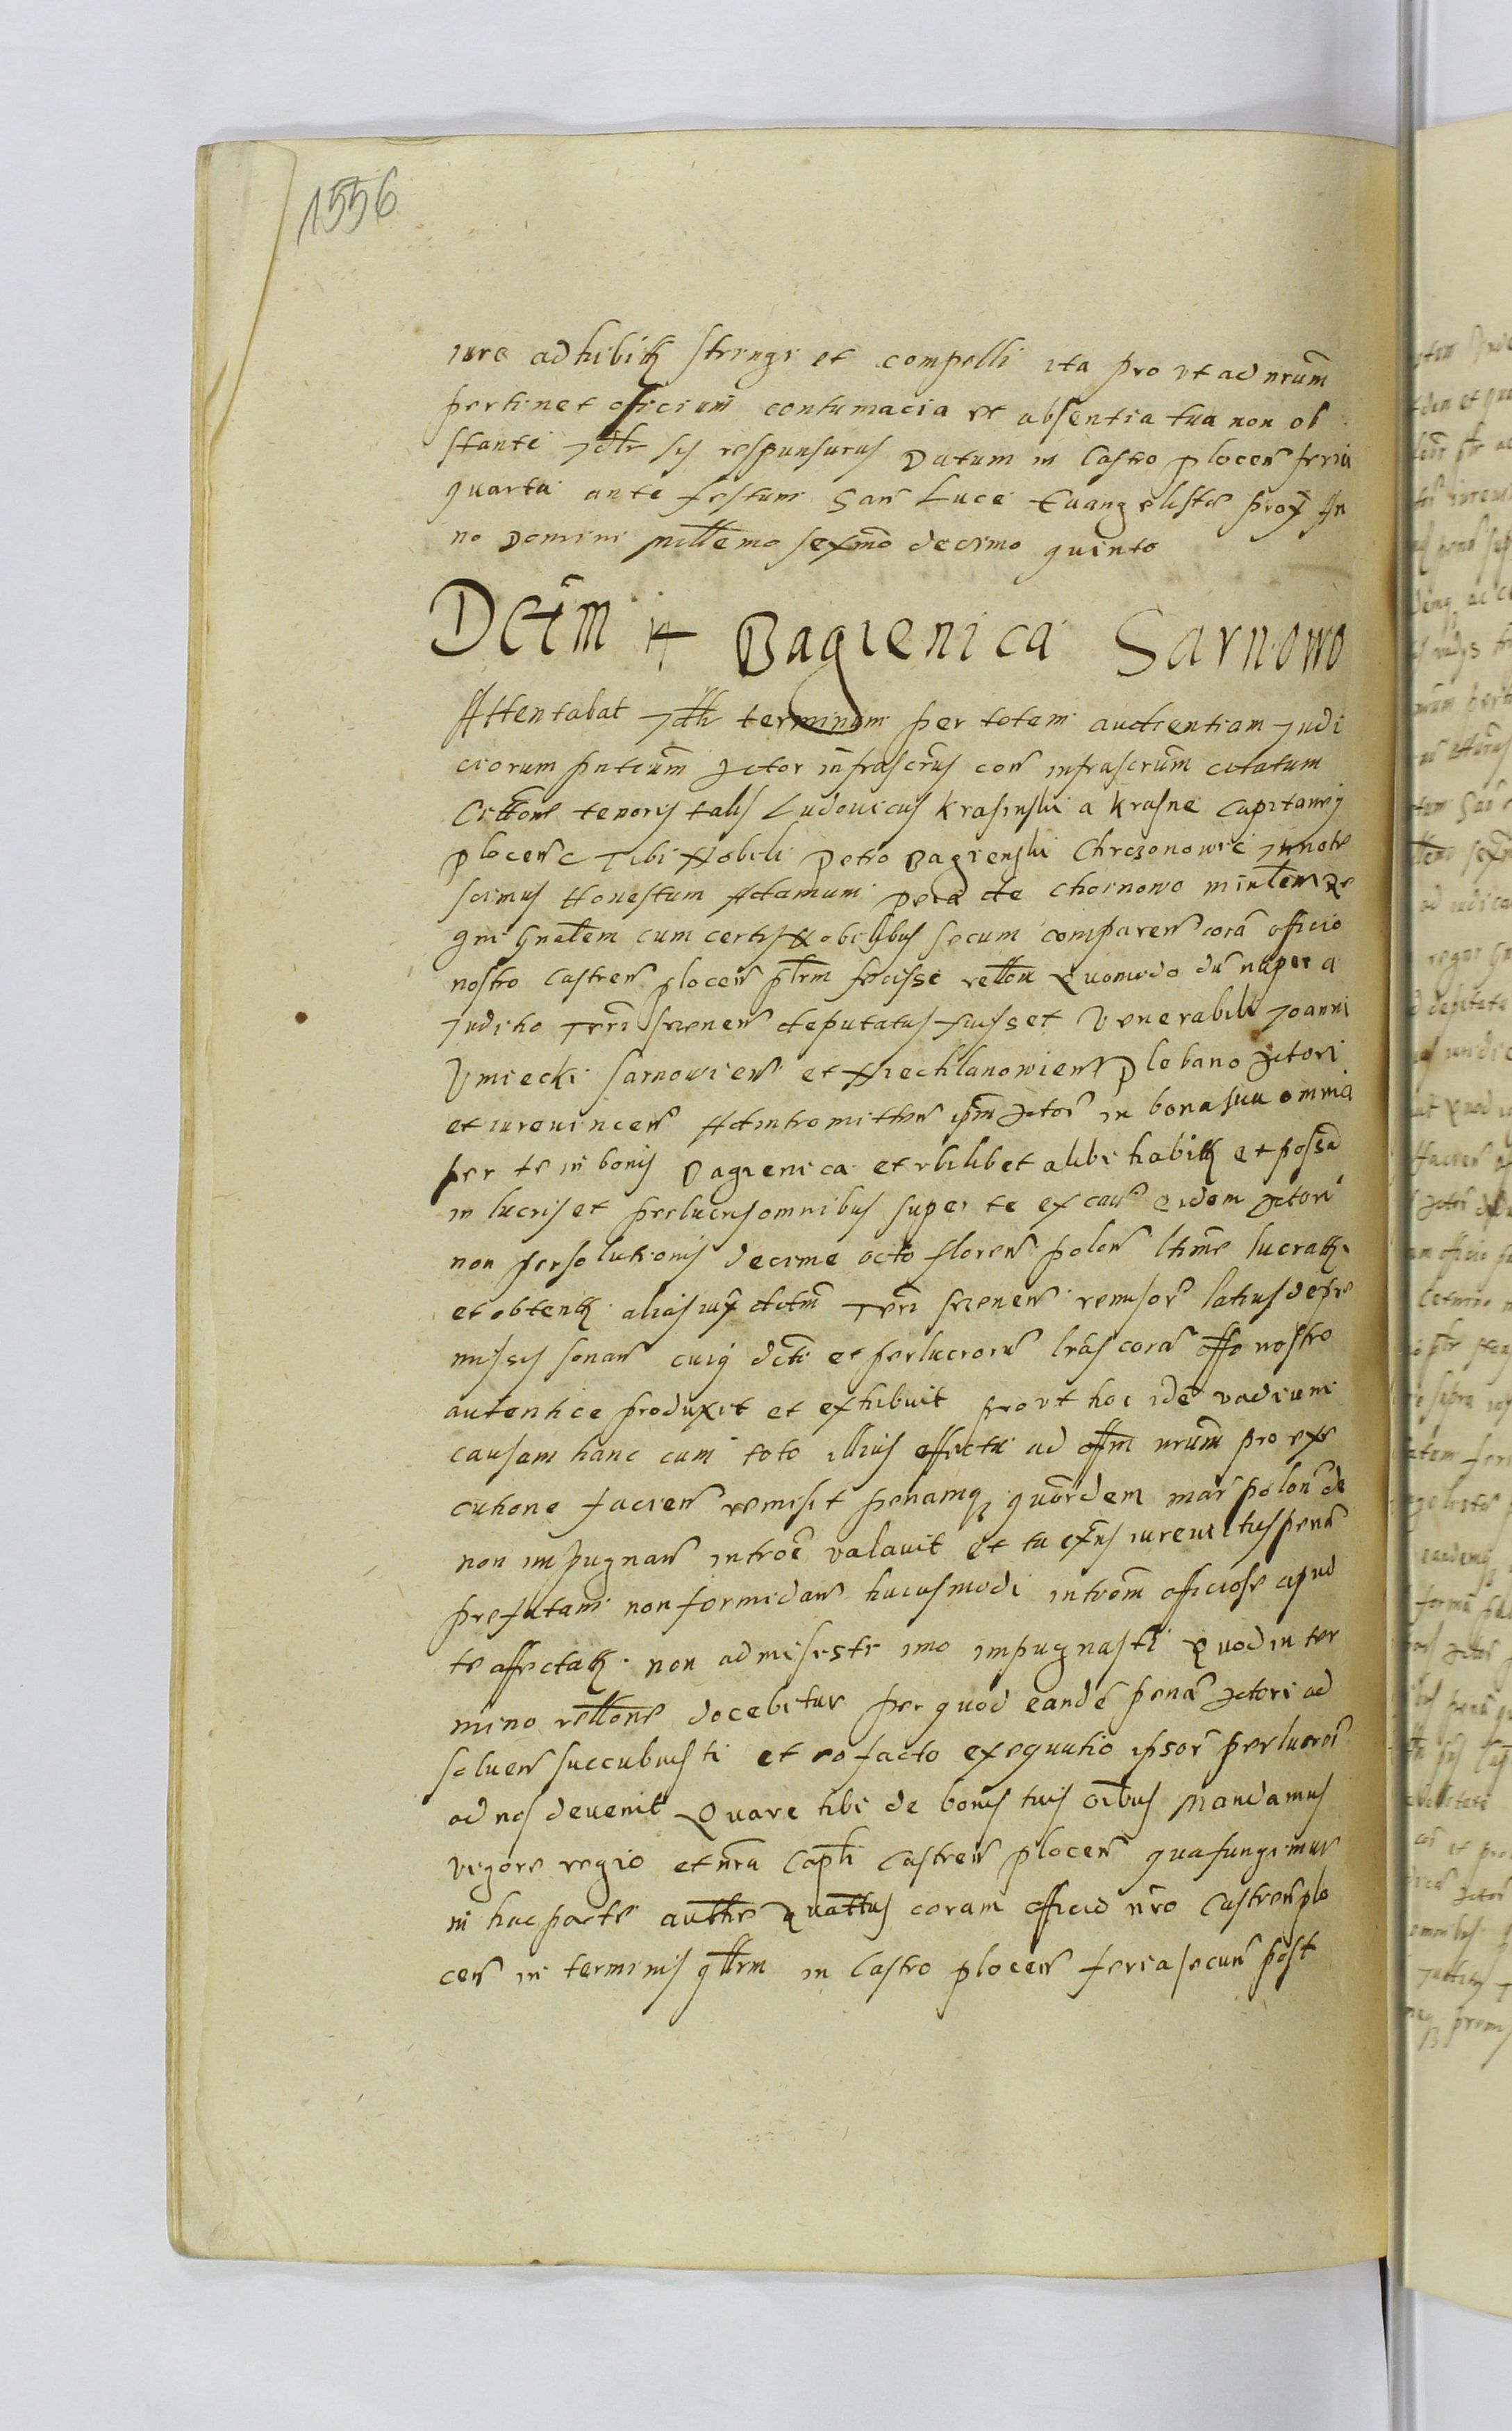 1556
iure adhibitis stringi et compelli ita pro ut ad nrum
pertinet officium contumacia et absentia tua non ob
stante Jdtr sis responsurus Datum in Castro plocen feria
quarta ante festum San Luce Euangeliste prox An
no Domini millemo sexmo decimo quinto
Dctm Bagienica Sarnowo
Attentabat terminum per totam audientiam Judi
ciorum pntium Actor infrascrius con infrascrum citatum
Citone tenoris talis Ludouicus Krasinski a Krasne Capitaneus
plocen Tibi Nobili Petro Bagienski Chrczonowic Innote
scimus Honestum Adamum de Chornowo minlem Re
gni gnalem cum certis Nobilibus secum comparen cora officio
nostro Castren plocen fecisse rellon Quomodo du nuper a
Judicio Terri srenen deputatus fuisset Venerabili Joanni
Vmiecki Sarnowien et Niechlanowien Plebano Actori
et iureuincen Ad intromitten ipm Actor in bona sua omnia
per te in bonis Bagienica et vbilibet alibi habit et possa
in lucris et perlucris omnibus super te ex caus eidem Actori
non persolutionis decime octo floren polon ltime lucrat
et obtent alias iux dctm Terri srenen remissor latius de pre
missis sonan cuius dcti et perlucroru lras cora offo nostro
autentice produxit et exhibuit prout hoc ide vadium
causam hanc cum toto illius effectu ad offm nrum pro exe
cutione facien remisit penamq quordem mar polon de
non impugnan introe valauit et tu exns iureuictus pena
prefatam non formidans huiusmodi introm officiose apud
te affectat non admisisti imo impugnasti Quod in ter
mino rellone docebitur per quod eande pena Actori ad
soluen succubuisti et eo facto exequutio ipsor perlucror
ad nos deuenit Quare tibi de bonis tuis oibus Mandamus
vigore regio et nra Capli Castren plocen qua fungimur
in hac parte authte Quattus coram officio nro Castren plo
cen in terminis qttrm in Castro plocen feria secun post